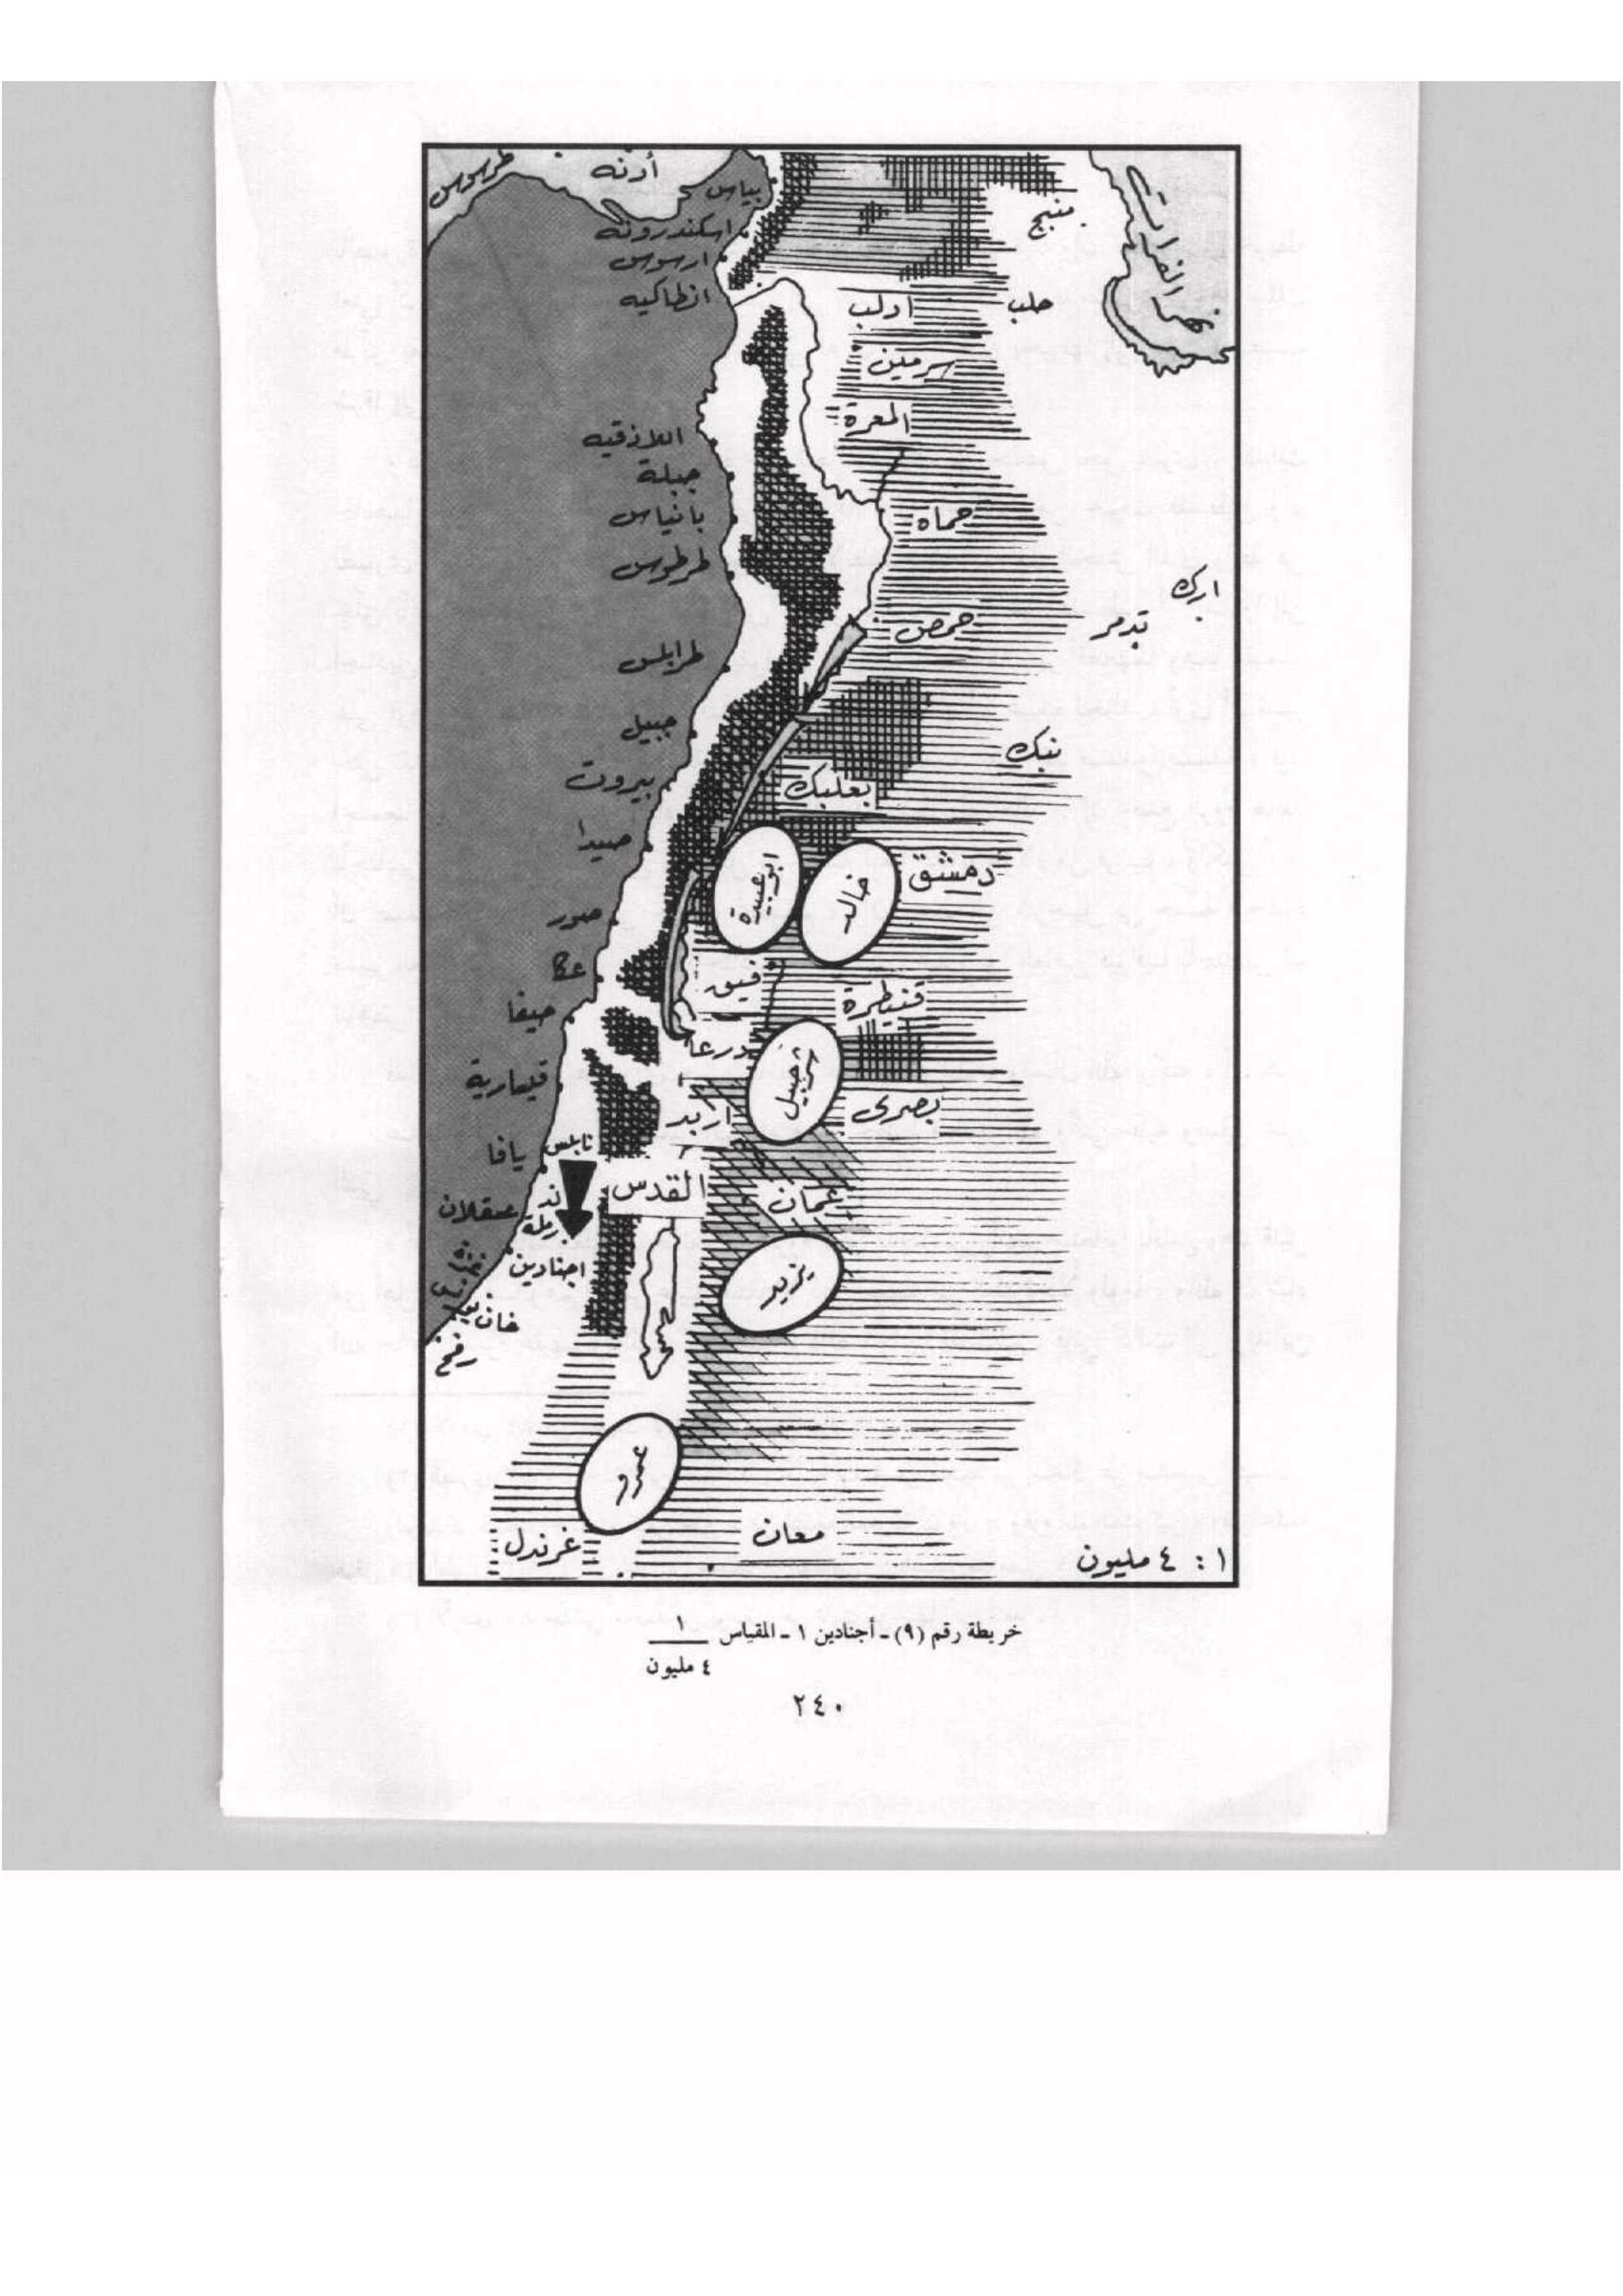 طرسوس
أدنه
بياس
اسكندرونه
ارسوس
انطاكيه
منبج
نهر الفرات
ادلب
حلب
سرمين
المعرة
اللاذقيه
جبلة
بانياس
طرطوس
حماه
ارك
تدمر
حمص
طرابلس
جبيل
نبك
بيروت
بعلبك
صيدا
ابو عبيدة
خالد
دمشق
صور
عكا
فيق
قنيطرة
حيفا
درعا
شرحبيل
قيسارية
اربد
بصرى
يافا
نابلس
القدس
عمان
عسقلان
لد
رملة
اجنادين
يزيد
غزة
خان يونس
رفح
عمرو
غرندل
معان
١ : ٤ مليون
خريطة رقم (٩) ـ أجنادين ١ ـ المقياس ١
٤ مليون
٢٤٠